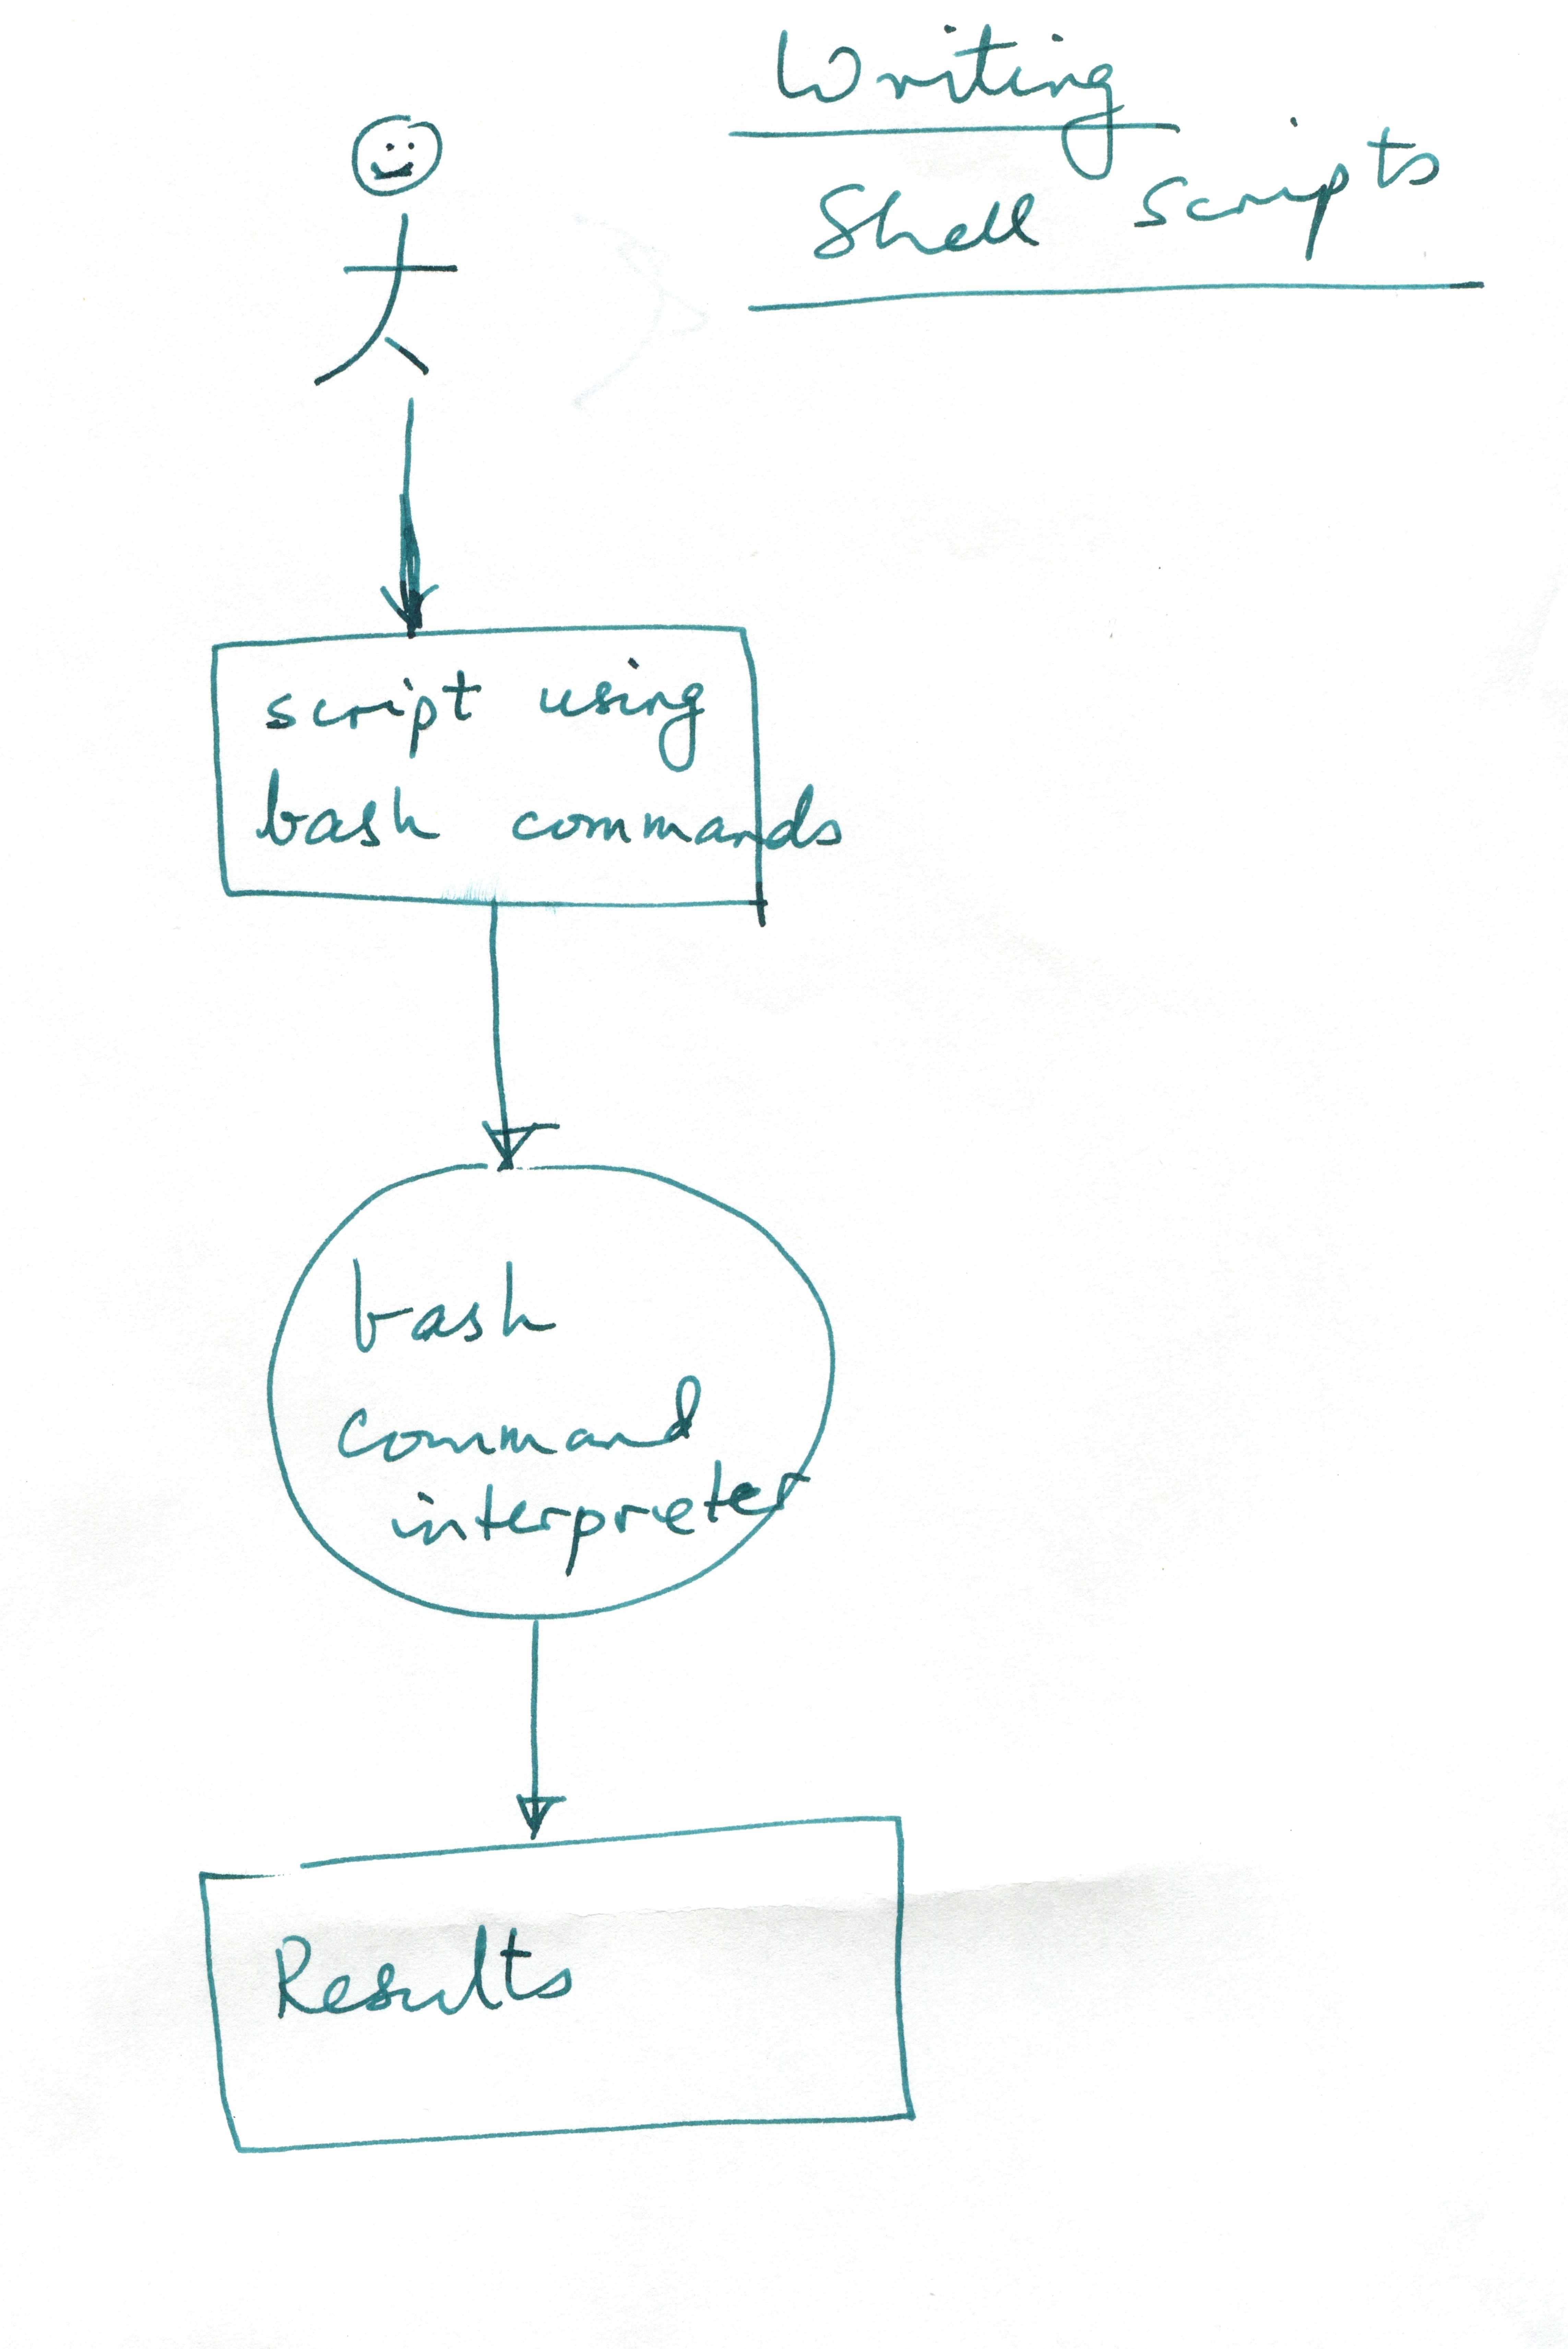 Writing
Shell scripts
script using
bash commands
bash
command
interpreter
Results